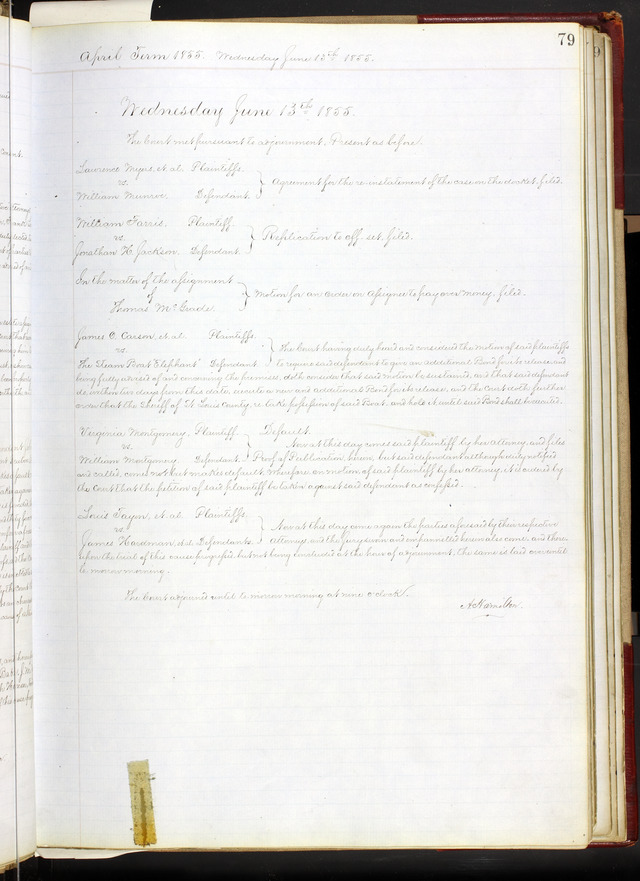 79
April Term 1855. Wednesday June 13th 1855.
Wednesday June 13th 1855.
The Court met pursuant to adjournment, Present as before.
Lawrence Myers, et al. Plaintiffs.
vs.
William Munroe. Defendant.
Agreement for the re-instatement of the case on the docket, filed.
William Farris. Plaintiff
vs.
Jonathan H. Jackson. Defendant.
Replication to off-set, filed.
In the matter of the assignment
of
Thomas McGrade.
Motion for an order on Assignee to pay over money, filed.
James C. Carson, et al. Plaintiffs.
vs.
The Steam Boat "Elephant" Defendant.
The Court having duly heard and considered the motion of said plaintiffs
to require said defendant to give an additional Bond for its release, and
being fully advised of and concerning the premises, doth consider that said motion be sustained, and that said defendant
do, within two days from this date, execute a new and additional Bond for its release, and the Court doth further
order that the Sheriff of St Louis County, re-take possession of said Boat, and hold it until said Bond shall be executed.
Virginia Montgomery. Plaintiff
vs.
William Montgomery Defendant.
Default.
Now at this day comes said plaintiff by her attorney, and files
Proof of Publication herein, but said defendant although duly notified
and called, comes not but makes default, Wherefore on motion of said plaintiff by her attorney it is ordered by
the Court that the petition of said plaintiff be taken against said defendant as confessed.
Louis et al. Plaintiffs.
vs.
James Hardman, Defendants.
Now at this day come again the parties aforesaid by their respective
Attorneys, and the jury sworn and empannelled herein also come, and there-
upon the trial of this cause progressed, but not being concluded at the hour of adjournment, the same is laid over until
to morrow morning.
The Court adjourned until to morrow morning at nine o'clock.
A Hamilton.